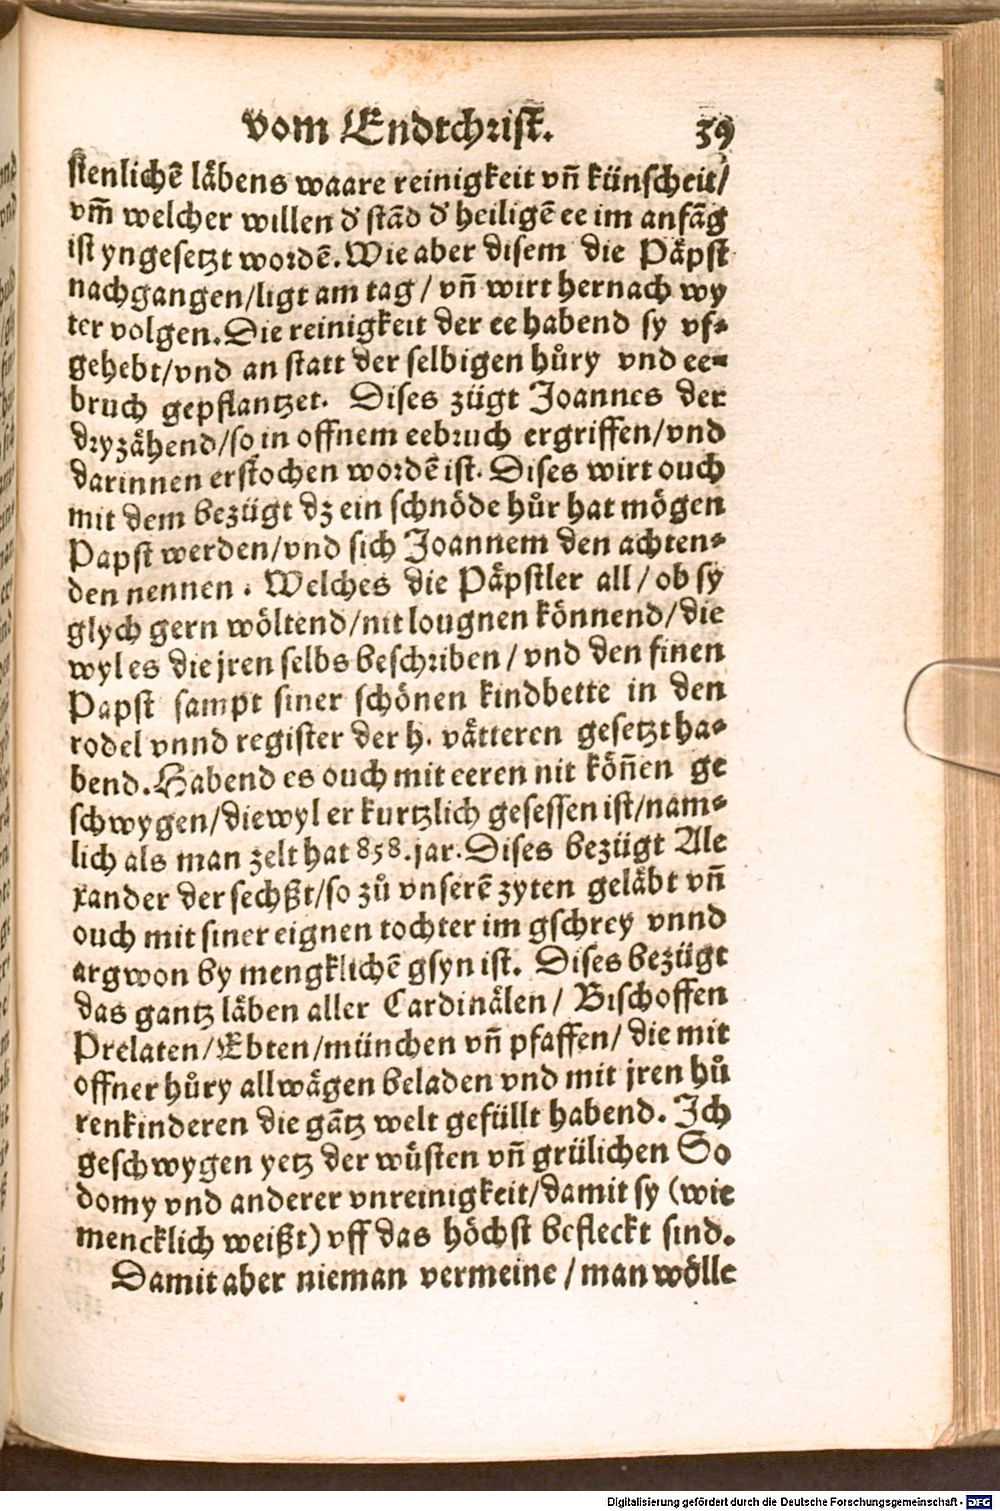 vom Endtchrist. 39
stenlichē läbens waare reinigkeit vñ künscheit/
vm̃ welcher willen d' stãd d' heiligē ee im anfãg
ist yngesetzt wordē. Wie aber disem die Päpst
nachgangen/ligt am tag/ vñ wirt hernach wy
ter volgen. Die reinigkeit der ee habend sy vf⸗
gehebt/vnd an statt der selbigen hůry vnd ee⸗
bruch gepflantzet. Dises zügt Joannes der
dryzähend/so in offnem eebruch ergriffen/vnd
darinnen erstochen wordē ist. Dises wirt ouch
mit dem bezügt dz ein schnöde hůr hat mögen
Papst werden/vnd sich Joannem den achten⸗
den nennen. Welches die Päpstler all/ ob sy
glych gern wöltend/nit lougnen könnend/die
wyl es die jren selbs beschriben/ vnd den finen
Papst sampt siner schönen kindbette in den
rodel vnnd register der h. vätteren gesetzt ha⸗
bend. Habend es ouch mit eeren nit köñen ge
schwygen/diewyl er kurtzlich gesessen ist/nam⸗
lich als man zelt hat 858. jar. Dises bezügt Ale
xander der sechßt/so zů vnserē zyten geläbt vñ
ouch mit siner eignen tochter im gschrey vnnd
argwon by mengklichē gsyn ist. Dises bezügt
das gantz läben aller Cardinälen/ Bischoffen
Prelaten/Ebten/münchen vñ pfaffen/ die mit
offner hůry allwägen beladen vnd mit jren hů
renkinderen die gãtz welt gefüllt habend. Ich
geschwygen yetz der wůsten vñ grülichen So
domy vnd anderer vnreinigkeit/damit sy (wie
mencklich weißt) vff das höchst befleckt sind.
Damit aber nieman vermeine/man wölle
Digitalisierung gefördert durch die Deutsche Forschungsgemeinschaft - DFG